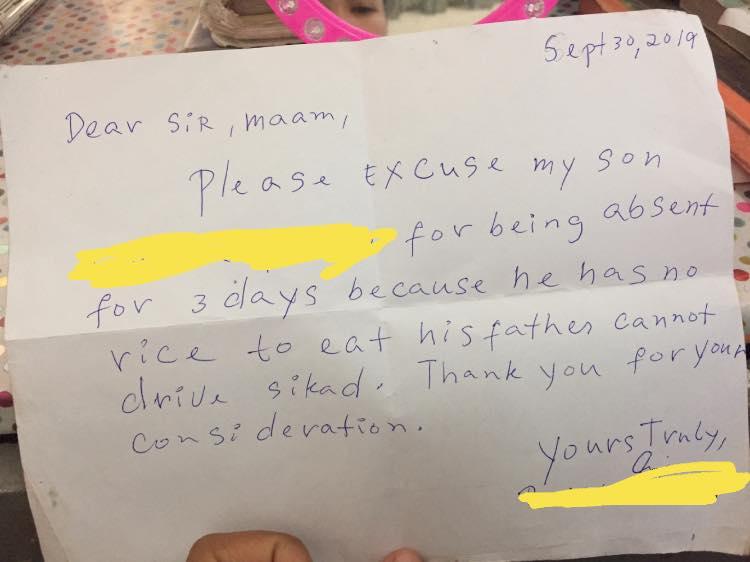 Sept 30, 2019
Dear Sir, maam,
Please Excuse my son
for being absent
for 3 days because he has no
rice to eat his father cannot
drive sikad. Thank you for your
consideration.
Yours Truly,